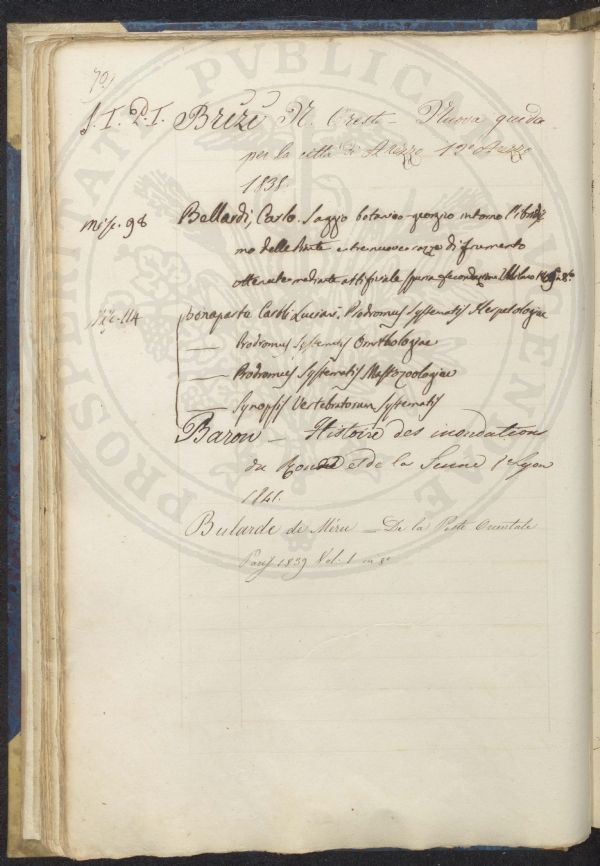 70)
J. I. P. I. Brizi N. Orest – Nuova guida
per la città di Arezzo 12º Arezzo
1838.
Misc. 98 Bellardi, Carlo. Saggio botanico-georgico intorno l'ibridis
mo delle piante e tre nuove razze di frumento
ottenute mediante artificiale spuria fecondazione Milano 8º
Misc. 114 bonaparte Caroli Luciani. Prodromus Systematis Herpetologiae
— Prodromus Systematis Ornithologiae
— Prodromus Systematis Mastozoologiae
— Synopsis Vertebratorum Systematis
Baron – Histoire des inondations
du Rone et de la Saone Lyon
1841.
Bularde de Méru – De la Peste Orientale
Paris 1839 Vol. 1 in 8º
PUBLICAE PROSPERITATI